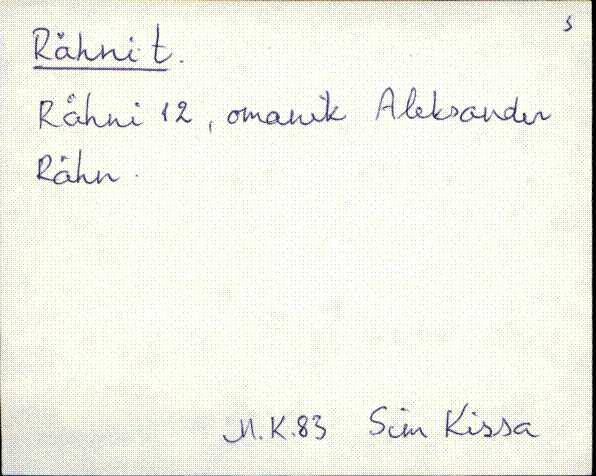 s
Rähni t.
Rähni 12, omanik Aleksander
Rähn.
M.K.83 Siim Kissa